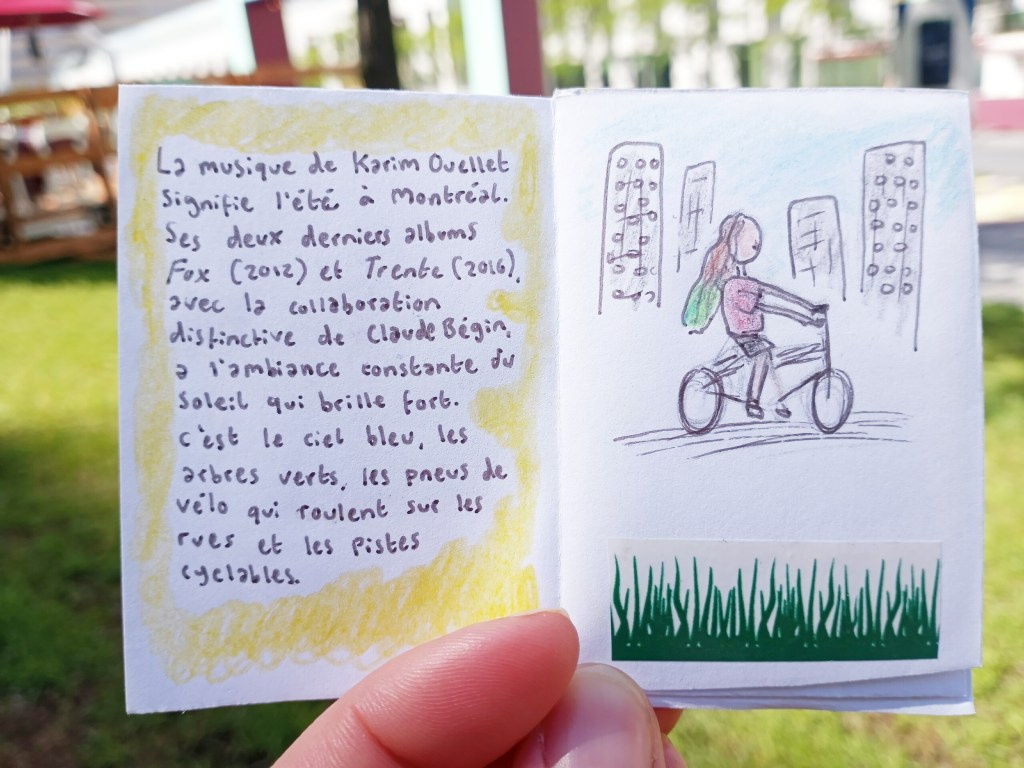 La musique de Karim Ouellet
signifie l'été à Montréal.
Ses deux derniers albums
Fox (2012) et Trente (2016),
avec la collaboration
distinctive de Claude Bégin,
a l'ambiance constante du
soleil qui brille fort.
c'est le ciel bleu, les
arbres verts, les pneus de
vélo qui roulent sur les
rues et les pistes
cyclables.